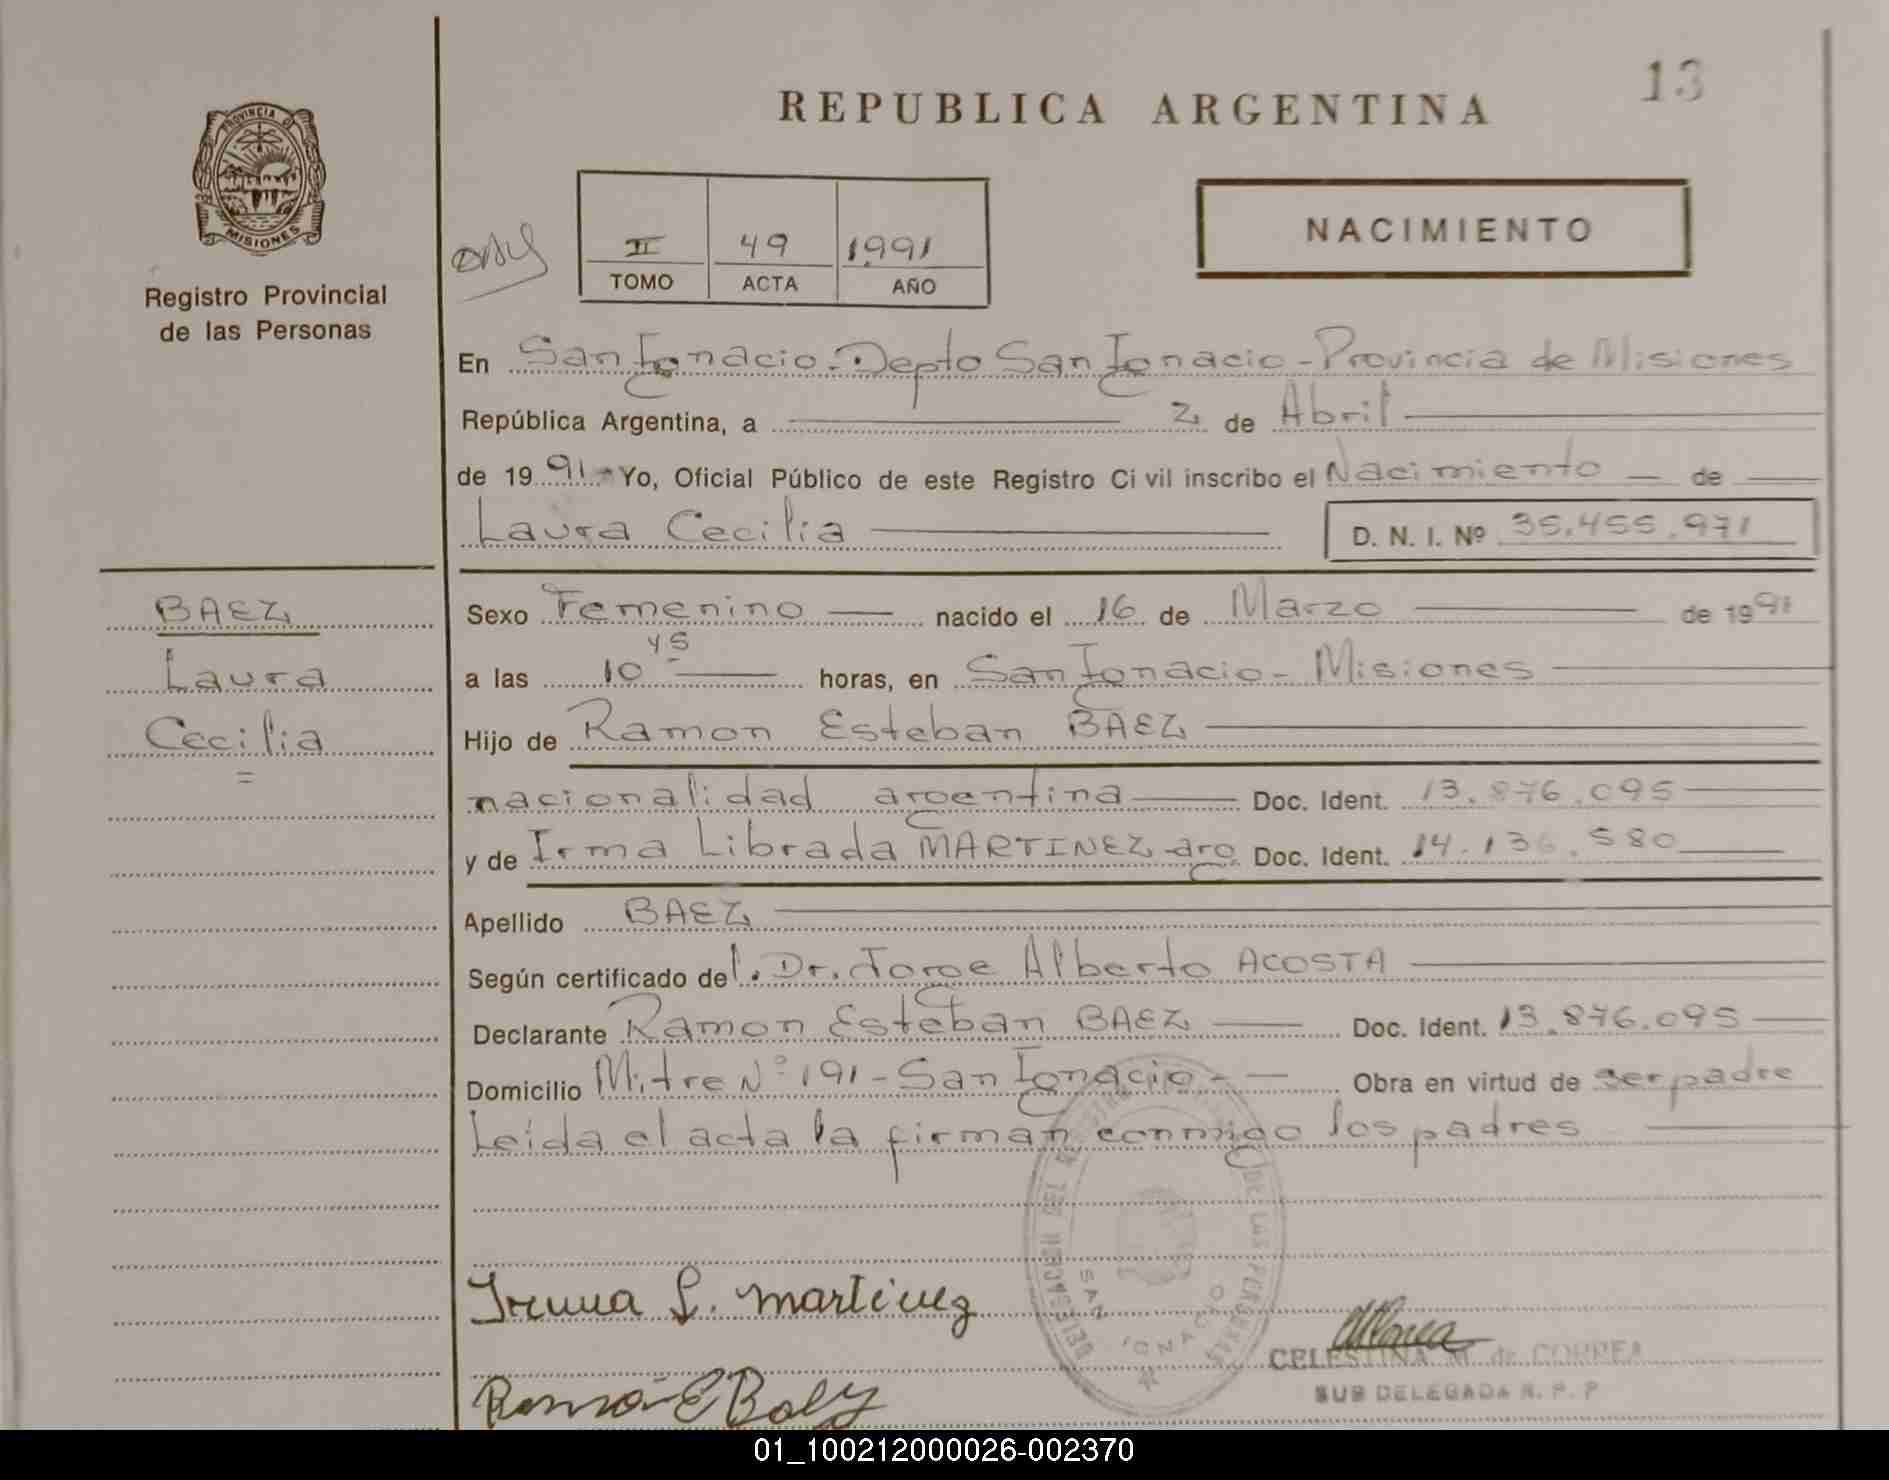 13
REPUBLICA ARGENTINA
PROVINCIA DE
MISIONES
Registro Provincial
de las Personas
II 49 1991
TOMO ACTA AÑO
NACIMIENTO
En San Ignacio. Depto San Ignacio - Provincia de Misiones
República Argentina, a 2 de Abril
de 1991 - Yo, Oficial Público de este Registro Civil inscribo el Nacimiento de
Laura Cecilia D. N. I. Nº 35.455.971
BAEZ
Laura
Cecilia
Sexo Femenino nacido el 16 de Marzo de 1991
a las 10 45 horas, en San Ignacio - Misiones
Hijo de Ramon Esteban BAEZ
nacionalidad argentina Doc. Ident. 13.876.095
y de Irma Librada MARTINEZ arg. Doc. Ident. 14.136.580
Apellido BAEZ
Según certificado del. Dr. Jorge Alberto ACOSTA
Declarante Ramon Esteban BAEZ Doc. Ident. 13.876.095
Domicilio Mitre Nº 191 - San Ignacio - Obra en virtud de ser padre
Leida el acta la firman conmigo los padres
DE LAS PERSONAS
SAN IGNACIO
Irma L. Martinez
CELESTINA M. de CORREA
SUB DELEGADA R. P. P
01_100212000026-002370